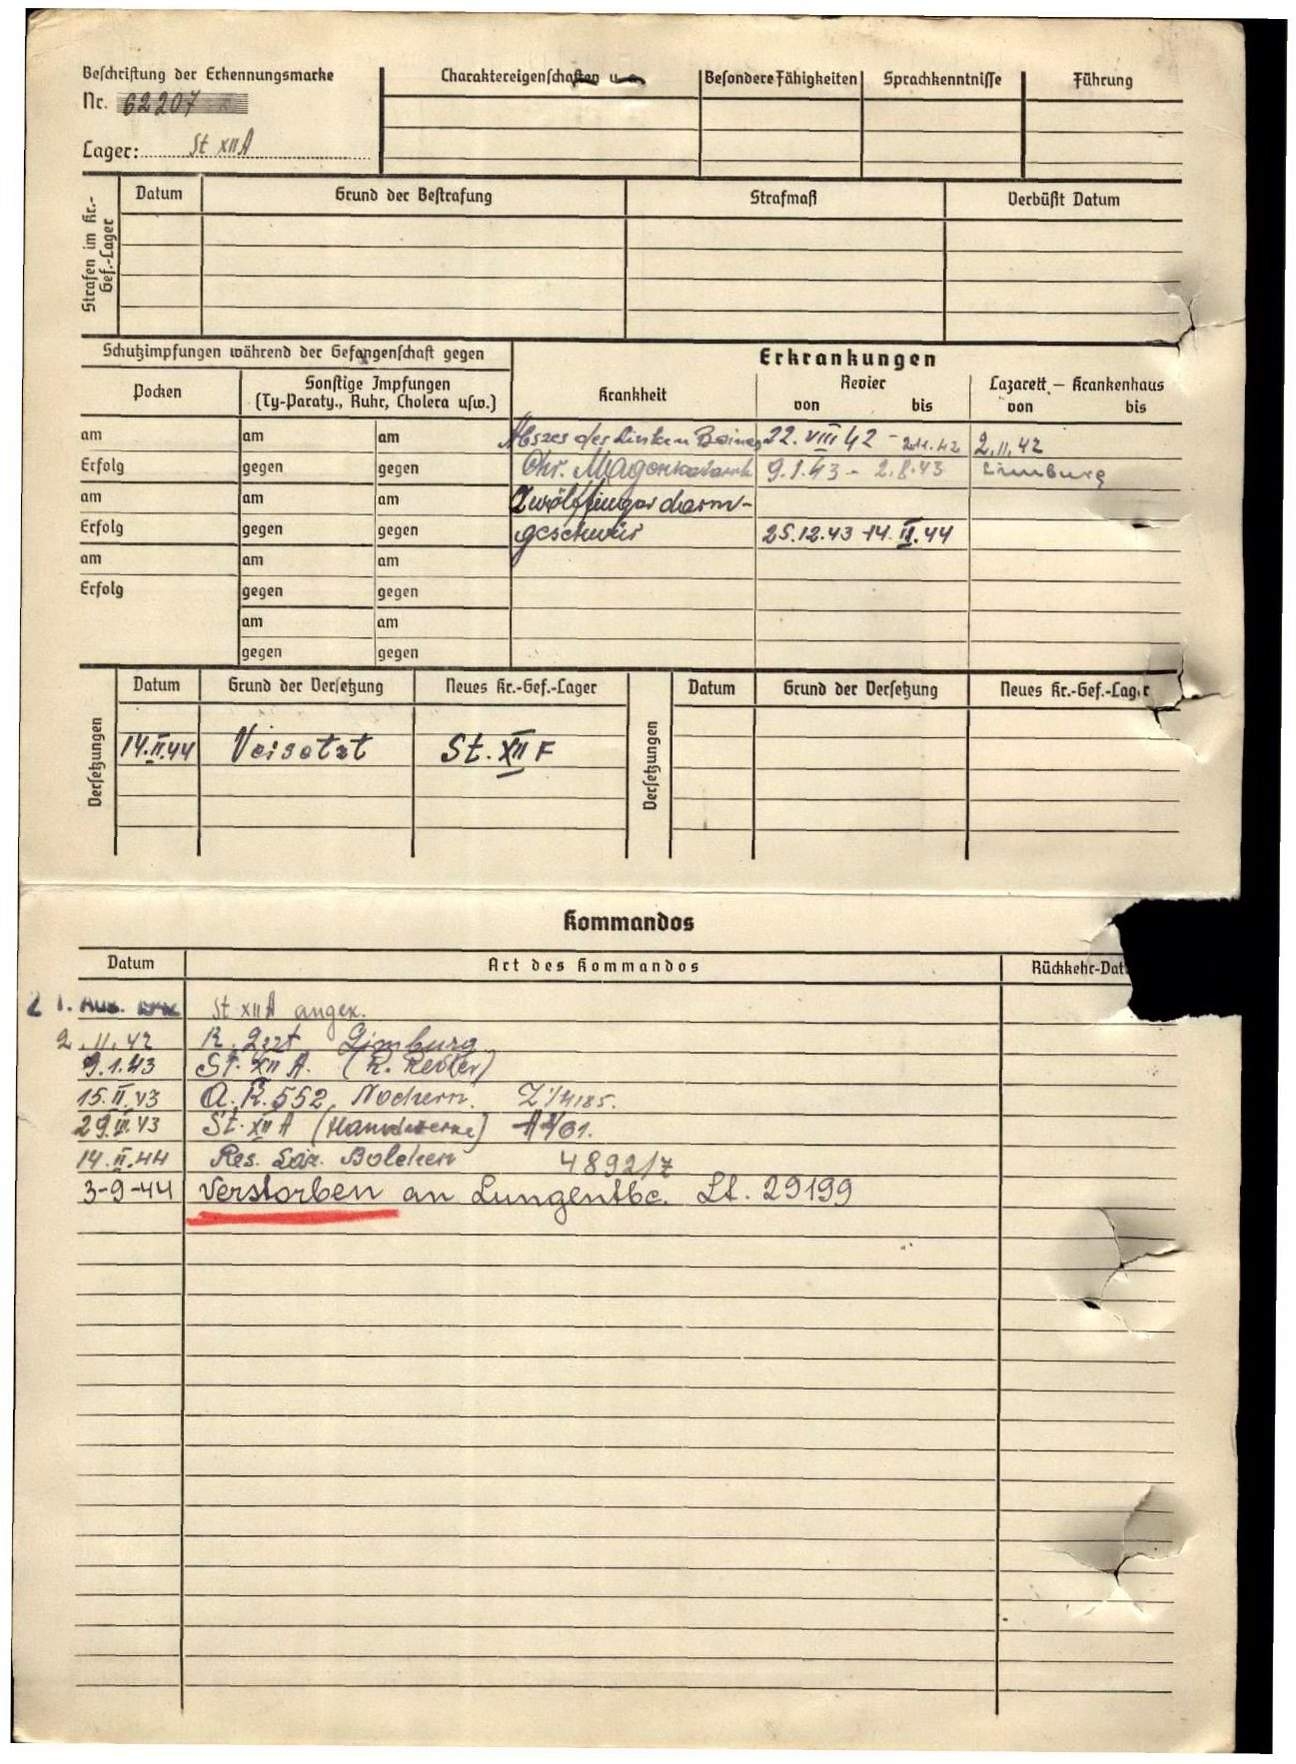 Beschriftung der Erkennungsmarke
Nr. 62207
Lager: St XII A
Charaktereigenschaften u. a.
Besondere Fähigkeiten
Sprachkenntnisse
Führung
Strafen im Kr.-
Gef.-Lager
Datum
Grund der Bestrafung
Strafmaß
Verbüßt Datum
Schutzimpfungen während der Gefangenschaft gegen
Pocken
Sonstige Impfungen
(Ty-Paraty., Ruhr, Cholera usw.)
am am am
Erfolg gegen gegen
am am am
Erfolg gegen gegen
am am am
Erfolg gegen gegen
am am
gegen gegen
Erkrankungen
Krankheit
Revier
von bis
Lazarett – Krankenhaus
von bis
Abszes des linken Beines 22. VIII 42 - 2.11.42 2.11.42
Chr. Magenkatarrh 9.1.43 - 2.8.43 Limburg
Zwölffingerdarm-
geschwür 25.12.43 - 14.II.44
Versetzungen
Datum Grund der Versetzung Neues Kr.-Gef.-Lager
14.II.44 Versetzt St. XII F
Versetzungen
Datum Grund der Versetzung Neues Kr.-Gef.-Lager
Kommandos
Datum Art des Kommandos Rückkehr-Dat
Aug. St XII A
2.11.42 Limburg
9.1.43 St. XII A. (K. Revier)
15.II.43 A.K. 552, Nochern.
St. XII A
14.II.44 Res. Laz. Bolchen 4892/7
3-9-44 Verstorben an Lungentbc. Lt. 29199